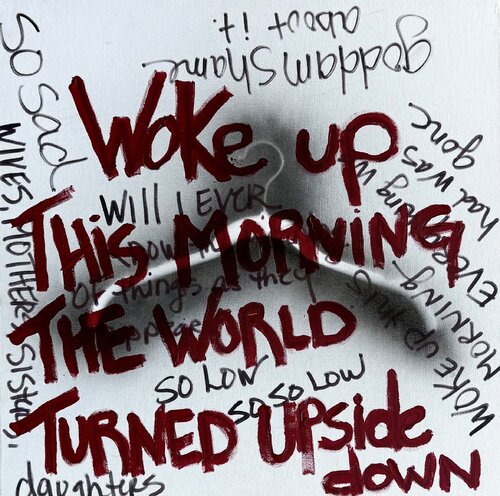 Woke up
This Morning
The World
Turned Upside
down
goddam shame
about it.
So Sad
WIVES, MOTHERS, SISTERS,
daughters
WILL I EVER
know the
of things as they
SO LOW
SO SO LOW
WOKE up this
MORNING
EVERything I
had was
gone